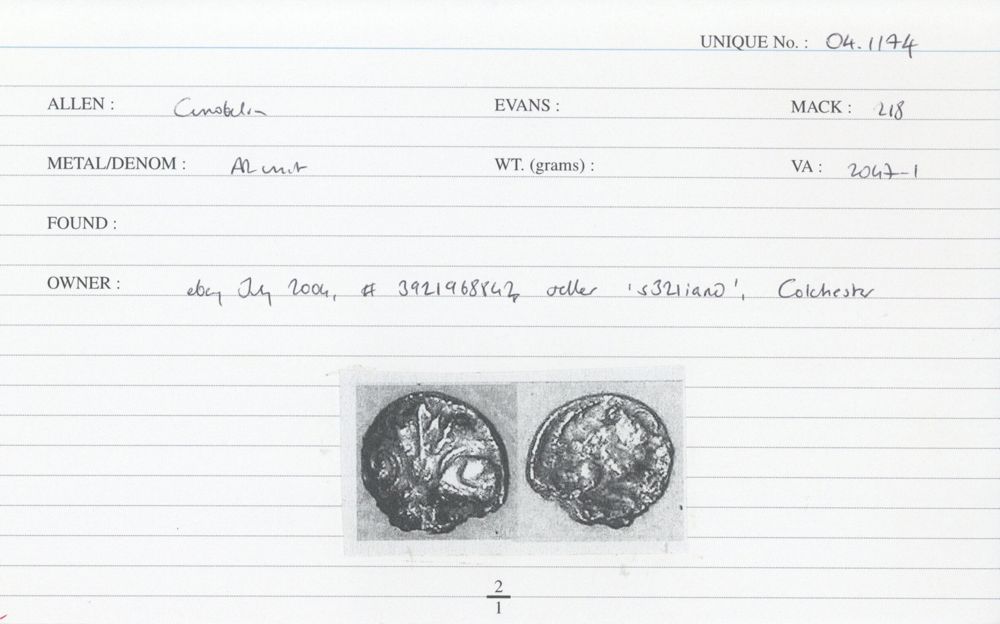 UNIQUE No. : 04.1174
ALLEN : Cunobelin EVANS : MACK : 218
METAL/DENOM : AR unit WT. (grams) : VA : 2047-1
FOUND :
OWNER : ebay July 2004, # 3921968842, seller 's321ian0', Colchester
2
1